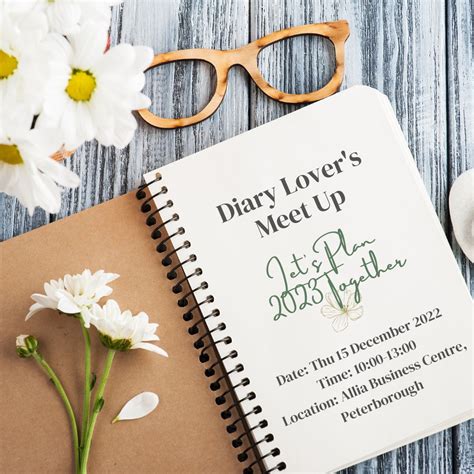 Diary Lover's
Meet Up
Let's Plan
2023 Together
Date: Thu 15 December 2022
Time: 10:00-13:00
Location: Allia Business Centre,
Peterborough